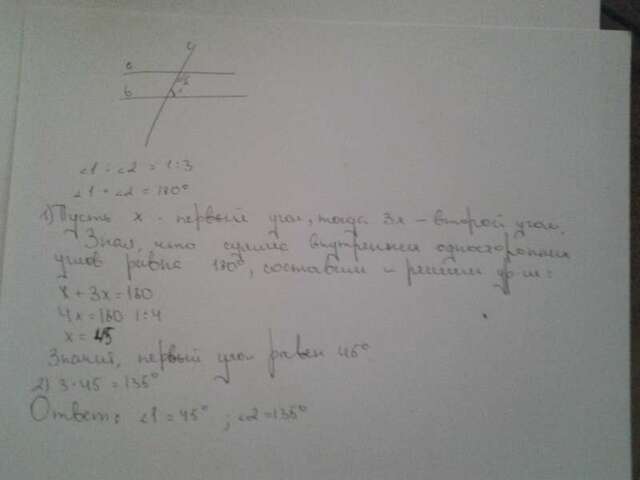 c
a
2
b
1
∠1 : ∠2 = 1:3
∠1 + ∠2 = 180°
1) Пусть x - первый угол, тогда 3x - второй угол.
Зная, что сумма внутренних односторонних
углов равна 180°, составим и решим ур-ие:
x + 3x = 180
4x = 180 |:4
x = 45
Значит, первый угол равен 45°
2) 3·45 = 135°
Ответ: ∠1 = 45° ; ∠2 = 135°